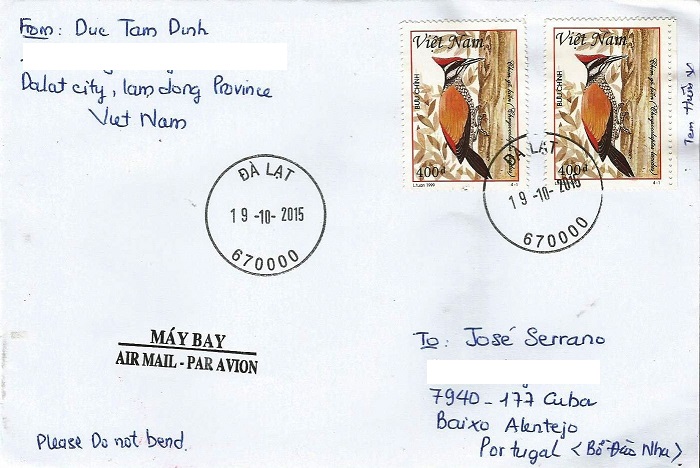 From: Duc Tam Dinh
Dalat city, lam đong Province
Viet Nam
Việt Nam
BƯU CHÍNH
400đ
4-1
Việt Nam
BƯU CHÍNH
400đ
4-1
ĐÀ LẠT
19-10-2015
670000
ĐÀ LẠT
19-10-2015
670000
MÁY BAY
AIR MAIL - PAR AVION
Please Do not bend.
To: José Serrano
7940-177 Cuba
Baixo Alentejo
Portugal <Bồ Đào Nha>